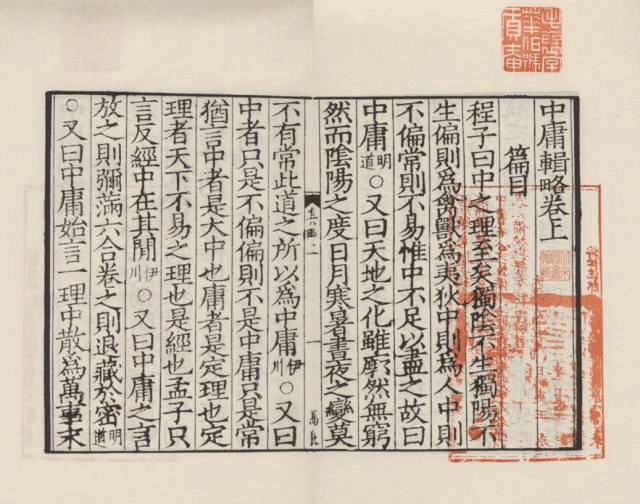 中庸輯略卷上
篇目
程子曰中之理至矣獨陰不生獨陽不
生偏則爲禽獸爲夷狄中則爲人中則
不偏常則不易惟中不足以盡之故曰
中庸明道○又曰天地之化雖廓然無窮
然而陰陽之度日月寒暑晝夜之變莫
不有常此道之所以爲中庸伊川○又曰
中者只是不偏偏則不是中庸只是常
猶言中者是大中也庸者是定理也定
理者天下不易之理也是經也孟子只
言反經中在其閒伊川○又曰中庸之言
放之則彌滿六合卷之則退藏於密明道
○又曰中庸始言一理中散爲萬事末